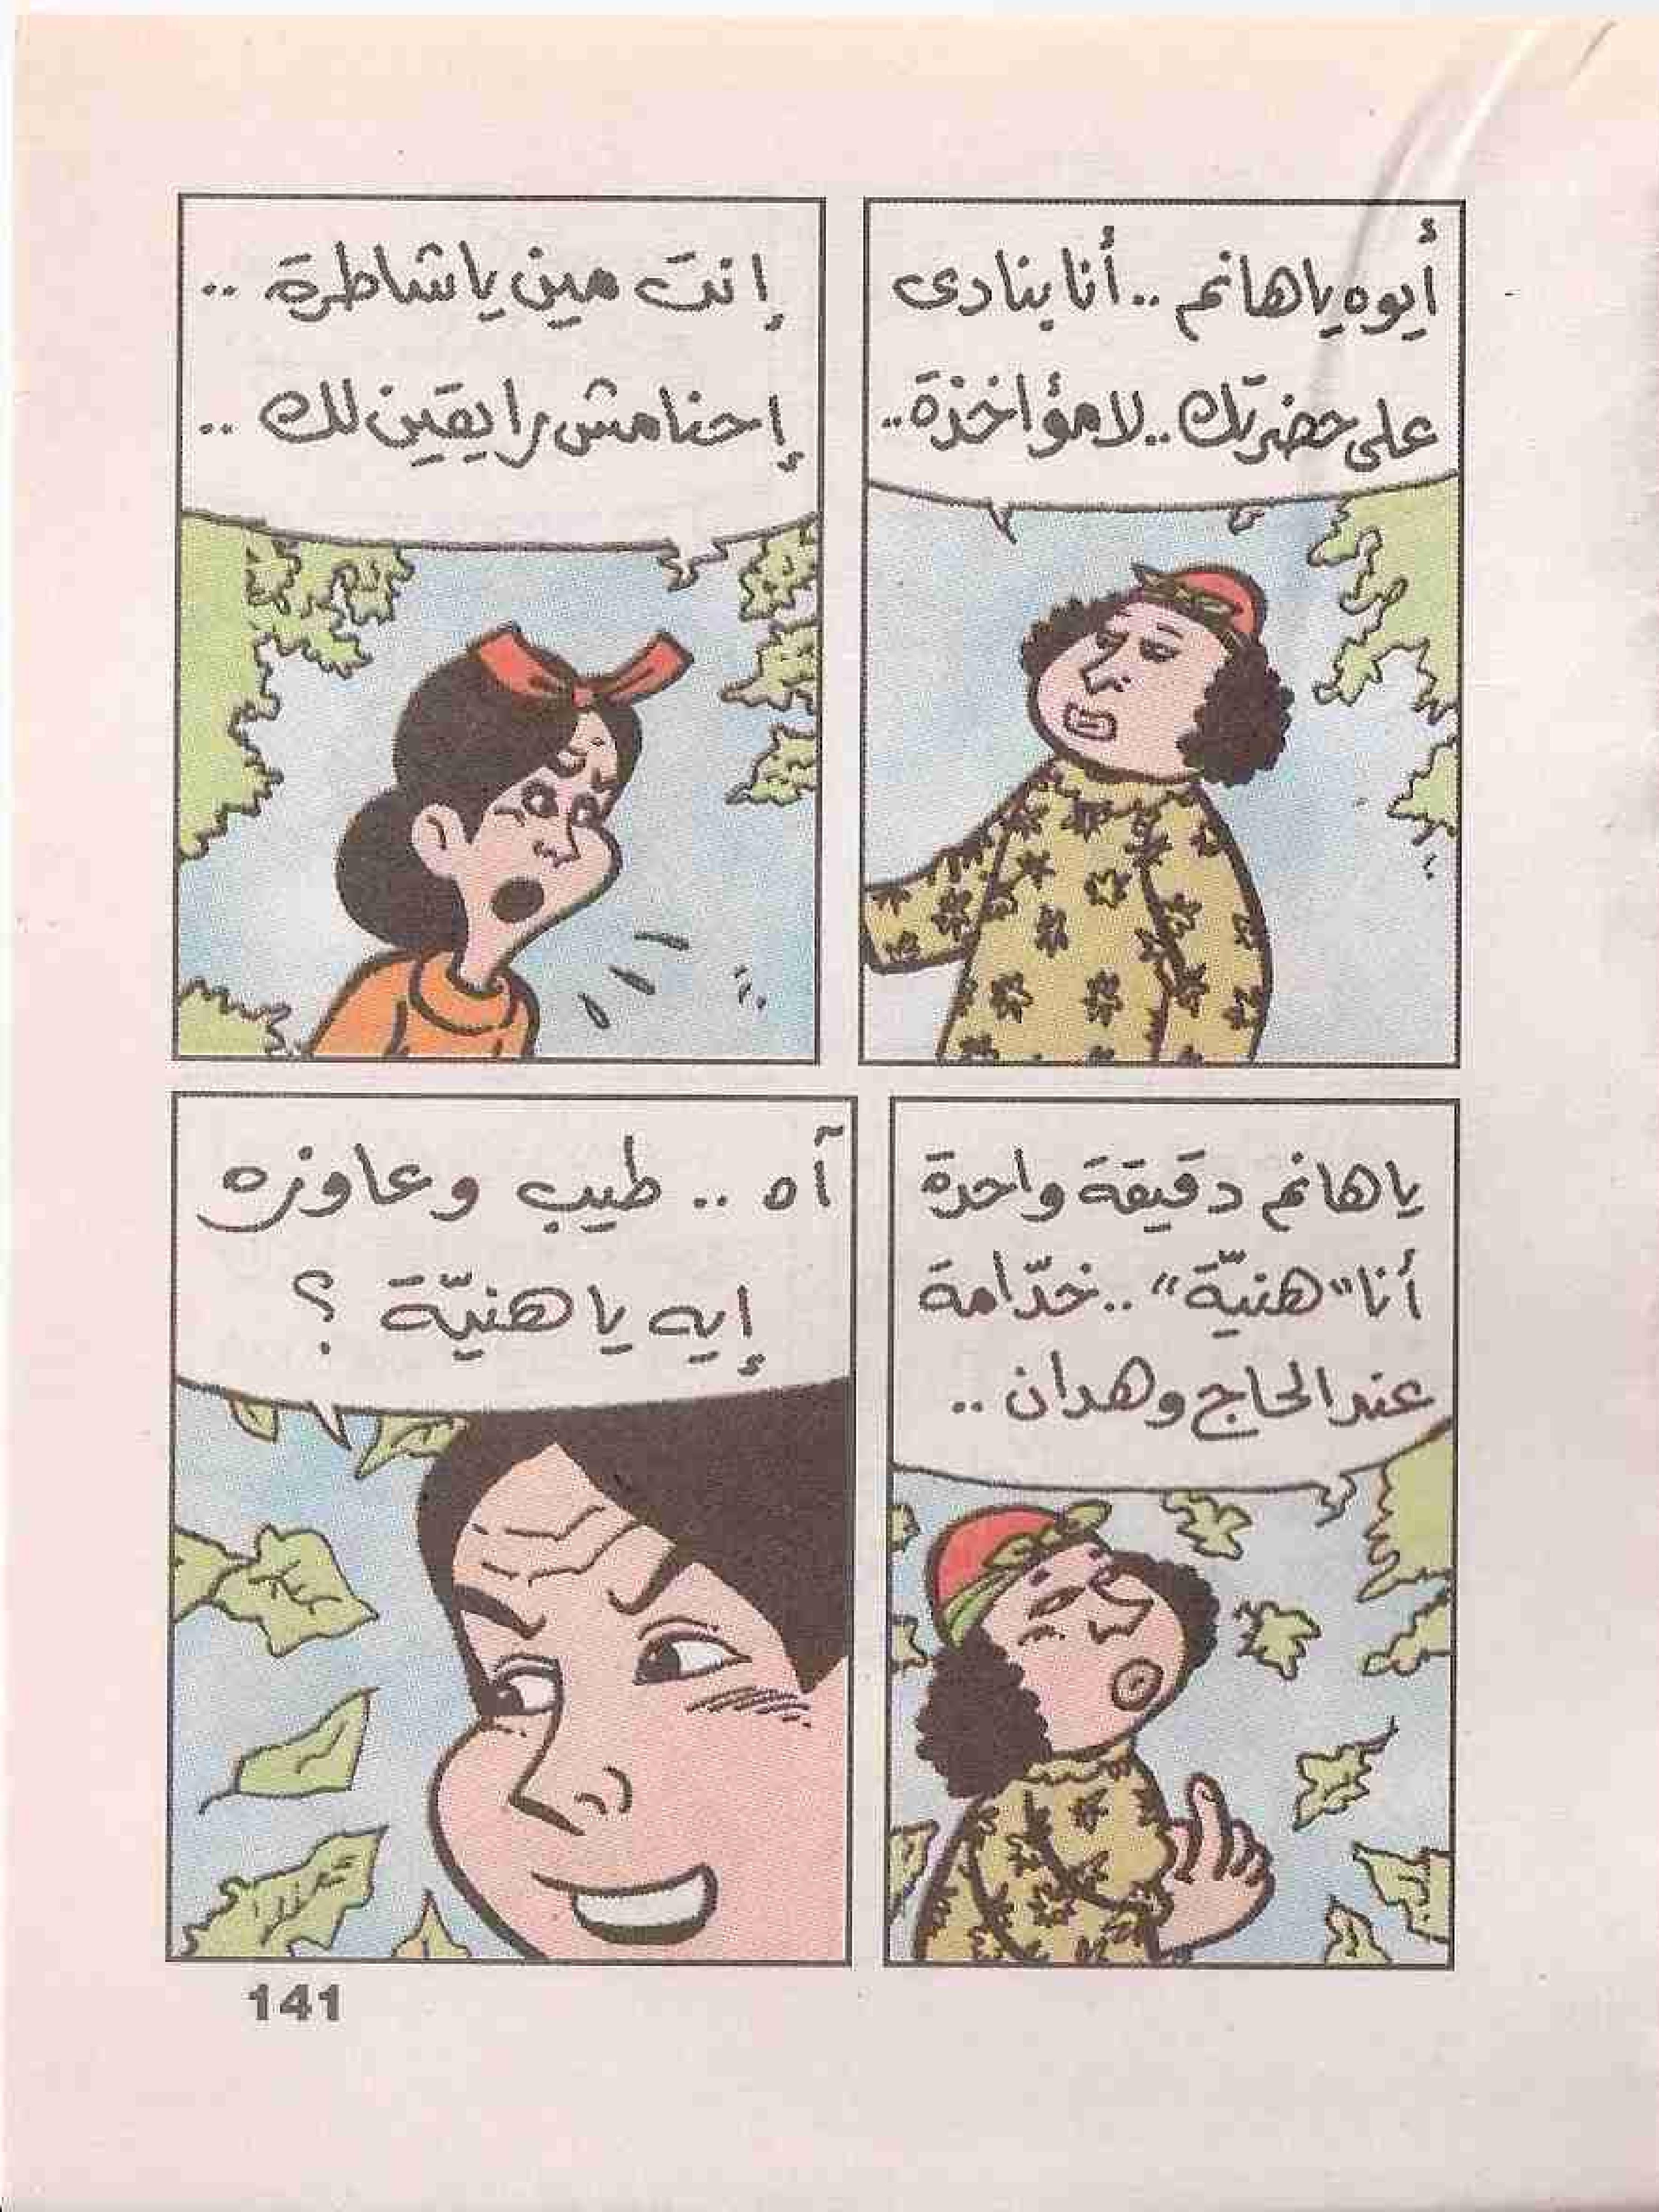 أيوه ياهانم .. أنا بنادى
على حضرتك .. لامؤاخذة ..
إنت مين ياشاطرة ..
إحنا مش رايقين لك ..
ياهانم دقيقة واحدة
أنا "هنيّة" .. خدّامة
عند الحاج وهدان ..
آه .. طيب وعاوزه
إيه ياهنيّة ؟
141